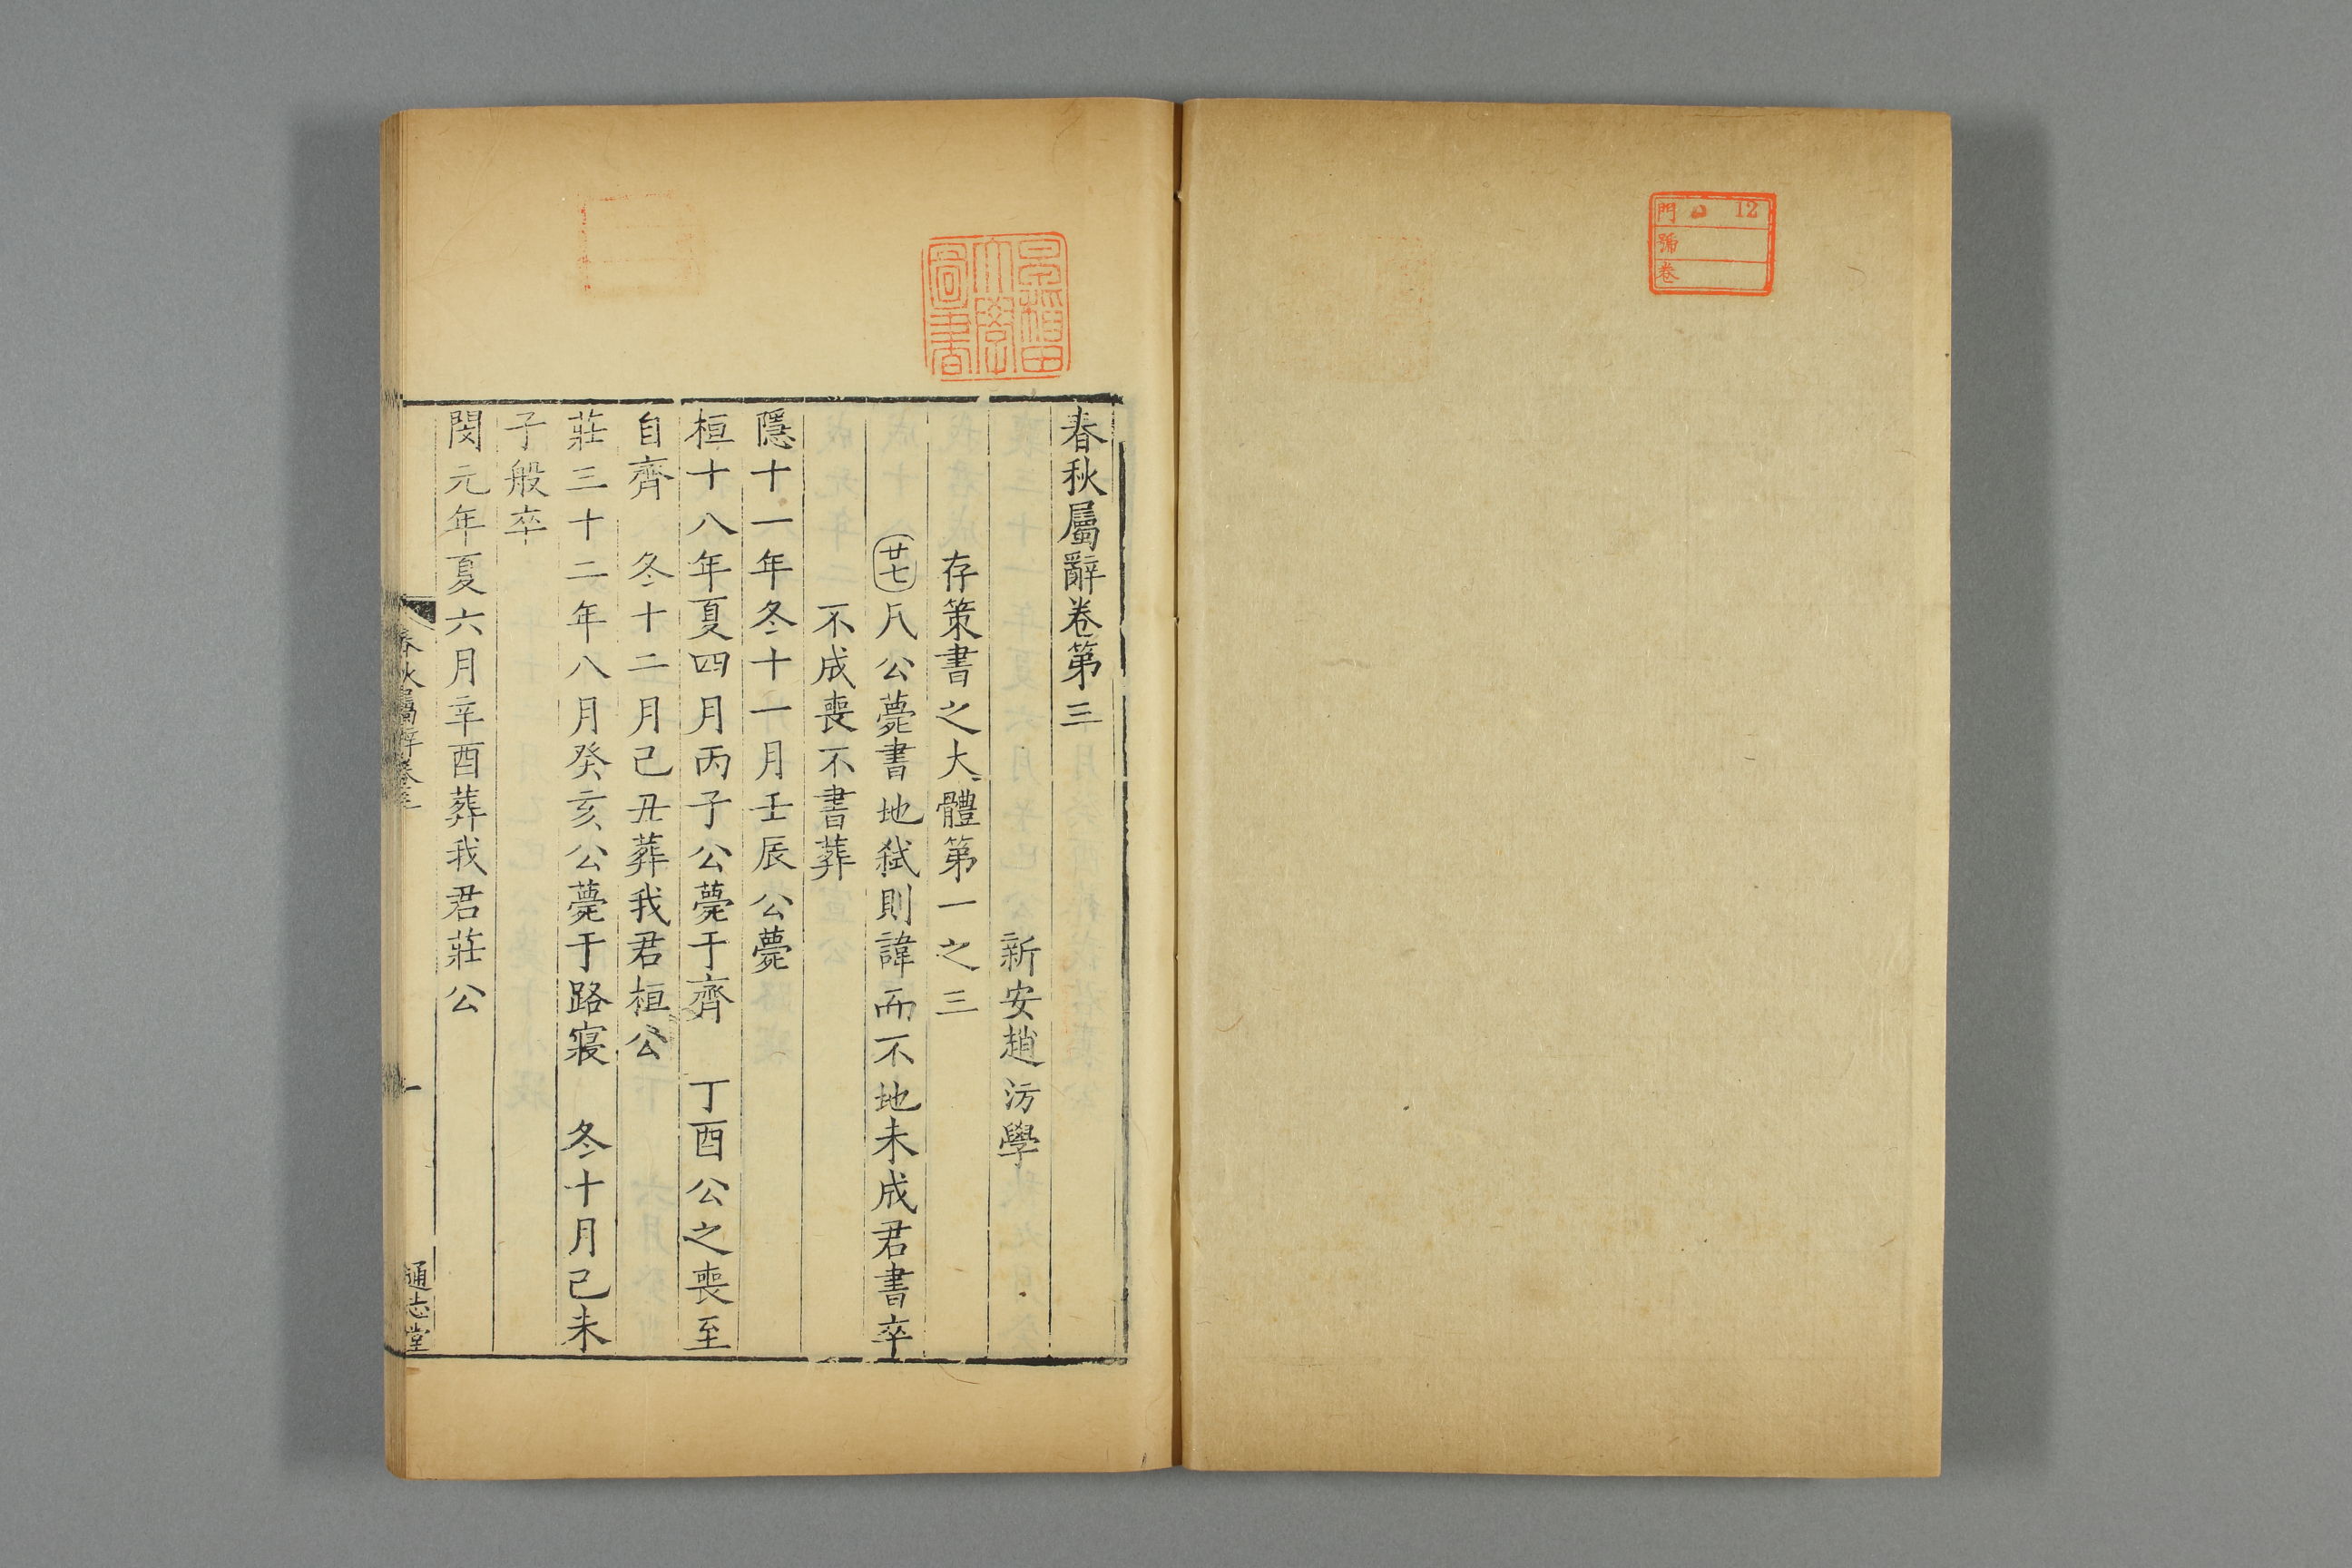 門 12
號
卷
早稲田
大學
圖書
春秋屬辭卷第三
新安趙汸學
存策書之大體第一之三
廿七凡公薨書地弑則諱而不地未成君書卒
不成喪不書葬
隱十一年冬十一月壬辰公薨
桓十八年夏四月丙子公薨于齊 丁酉公之喪至
自齊 冬十二月己丑葬我君桓公
莊三十二年八月癸亥公薨于路寢 冬十月己未
子般卒
閔元年夏六月辛酉葬我君莊公
春秋屬辭卷三
一
通志堂